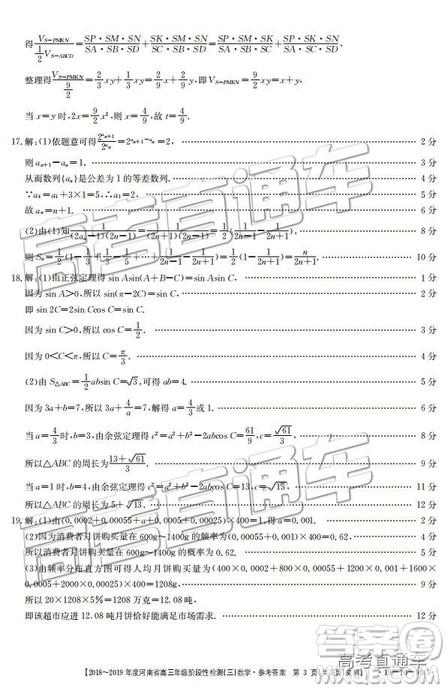 得 V_{S-PMKN}/(1/2 V_{S-ABCD}) = SP·SM·SN/(SA·SB·SD) + SK·SM·SN/(SC·SB·SD) = SP·SM·SK/(SA·SB·SC) + SP·SN·SK/(SA·SD·SC).
整理得 V_{S-PMKN}/(9/2) = 2/3 xy + 1/3 xy = 2/9 x + 2/9 y,即 V_{S-PMKN} = 9/2 xy = x+y,
当 x=y 时,2x = 9/2 x²,则 x = 4/9,故 t = 4/9.
17.解:(1)依题意可得 2^{a_{n+1}}/2^{a_n} = 2^{a_{n+1}-a_n} = 2, 2分
则 a_{n+1}-a_n=1, 3分
从而数列{a_n}是公差为1的等差数列. 4分
∵a_4=a_1+3×1=5,∴a_1=2. 5分
故 6分
(2)由(1)知 8分
10分
18.解:(1)由正弦定理得 sin Asin(A+B-C)=sin Asin C, 1分
因为 sin A>0,所以 sin(π-2C)=sin C, 2分
即 sin 2C=2sin Ccos C=sin C. 3分
因为 sin C>0,所以 cos C=1/2. 4分
因为 0<C<π,所以 C=π/3. 4分
(2)由 S_{△ABC}=1/2 absin C=√3,可得 ab=4. 5分
因为 3a+b=7,所以 3a+4/a=7,解得 a=4/3 或 1. 6分
当 a=4/3 时,b=3,由余弦定理得 c²=a²+b²-2abcos C=61/9,c=√61/3. 8分
所以△ABC 的周长为 (13+√61)/3. 9分
当 a=1 时,b=4,由余弦定理得 c²=a²+b²-2abcos C=13,c=√13. 11分
所以△ABC 的周长为 5+√13. 12分
19.解:(1)由(0.0002+0.00055+a+0.0005+0.00025)×400=1,得 a=0.001. 2分
(2)因为消费者月饼购买量在 600g~1400g 的频率为(0.00055+0.001)×400=0.62, 4分
所以消费者月饼购买量在 600g~1400g 的概率为 0.62. 5分
(3)由频率分布直方图可得人均月饼购买量为(400×0.0002+800×0.00055+1200×0.001+1600×
0.0005+2000×0.00025)×400=1208g. 9分
所以 20×1208×5%=1208 万克=12.08 吨, 11分
即该超市应进 12.08 吨月饼. 12分
【2018~2019年度河南省高三年级阶段性检测(三)数学·参考答案 第3页
高考直通车
高考直通车
高考直通车